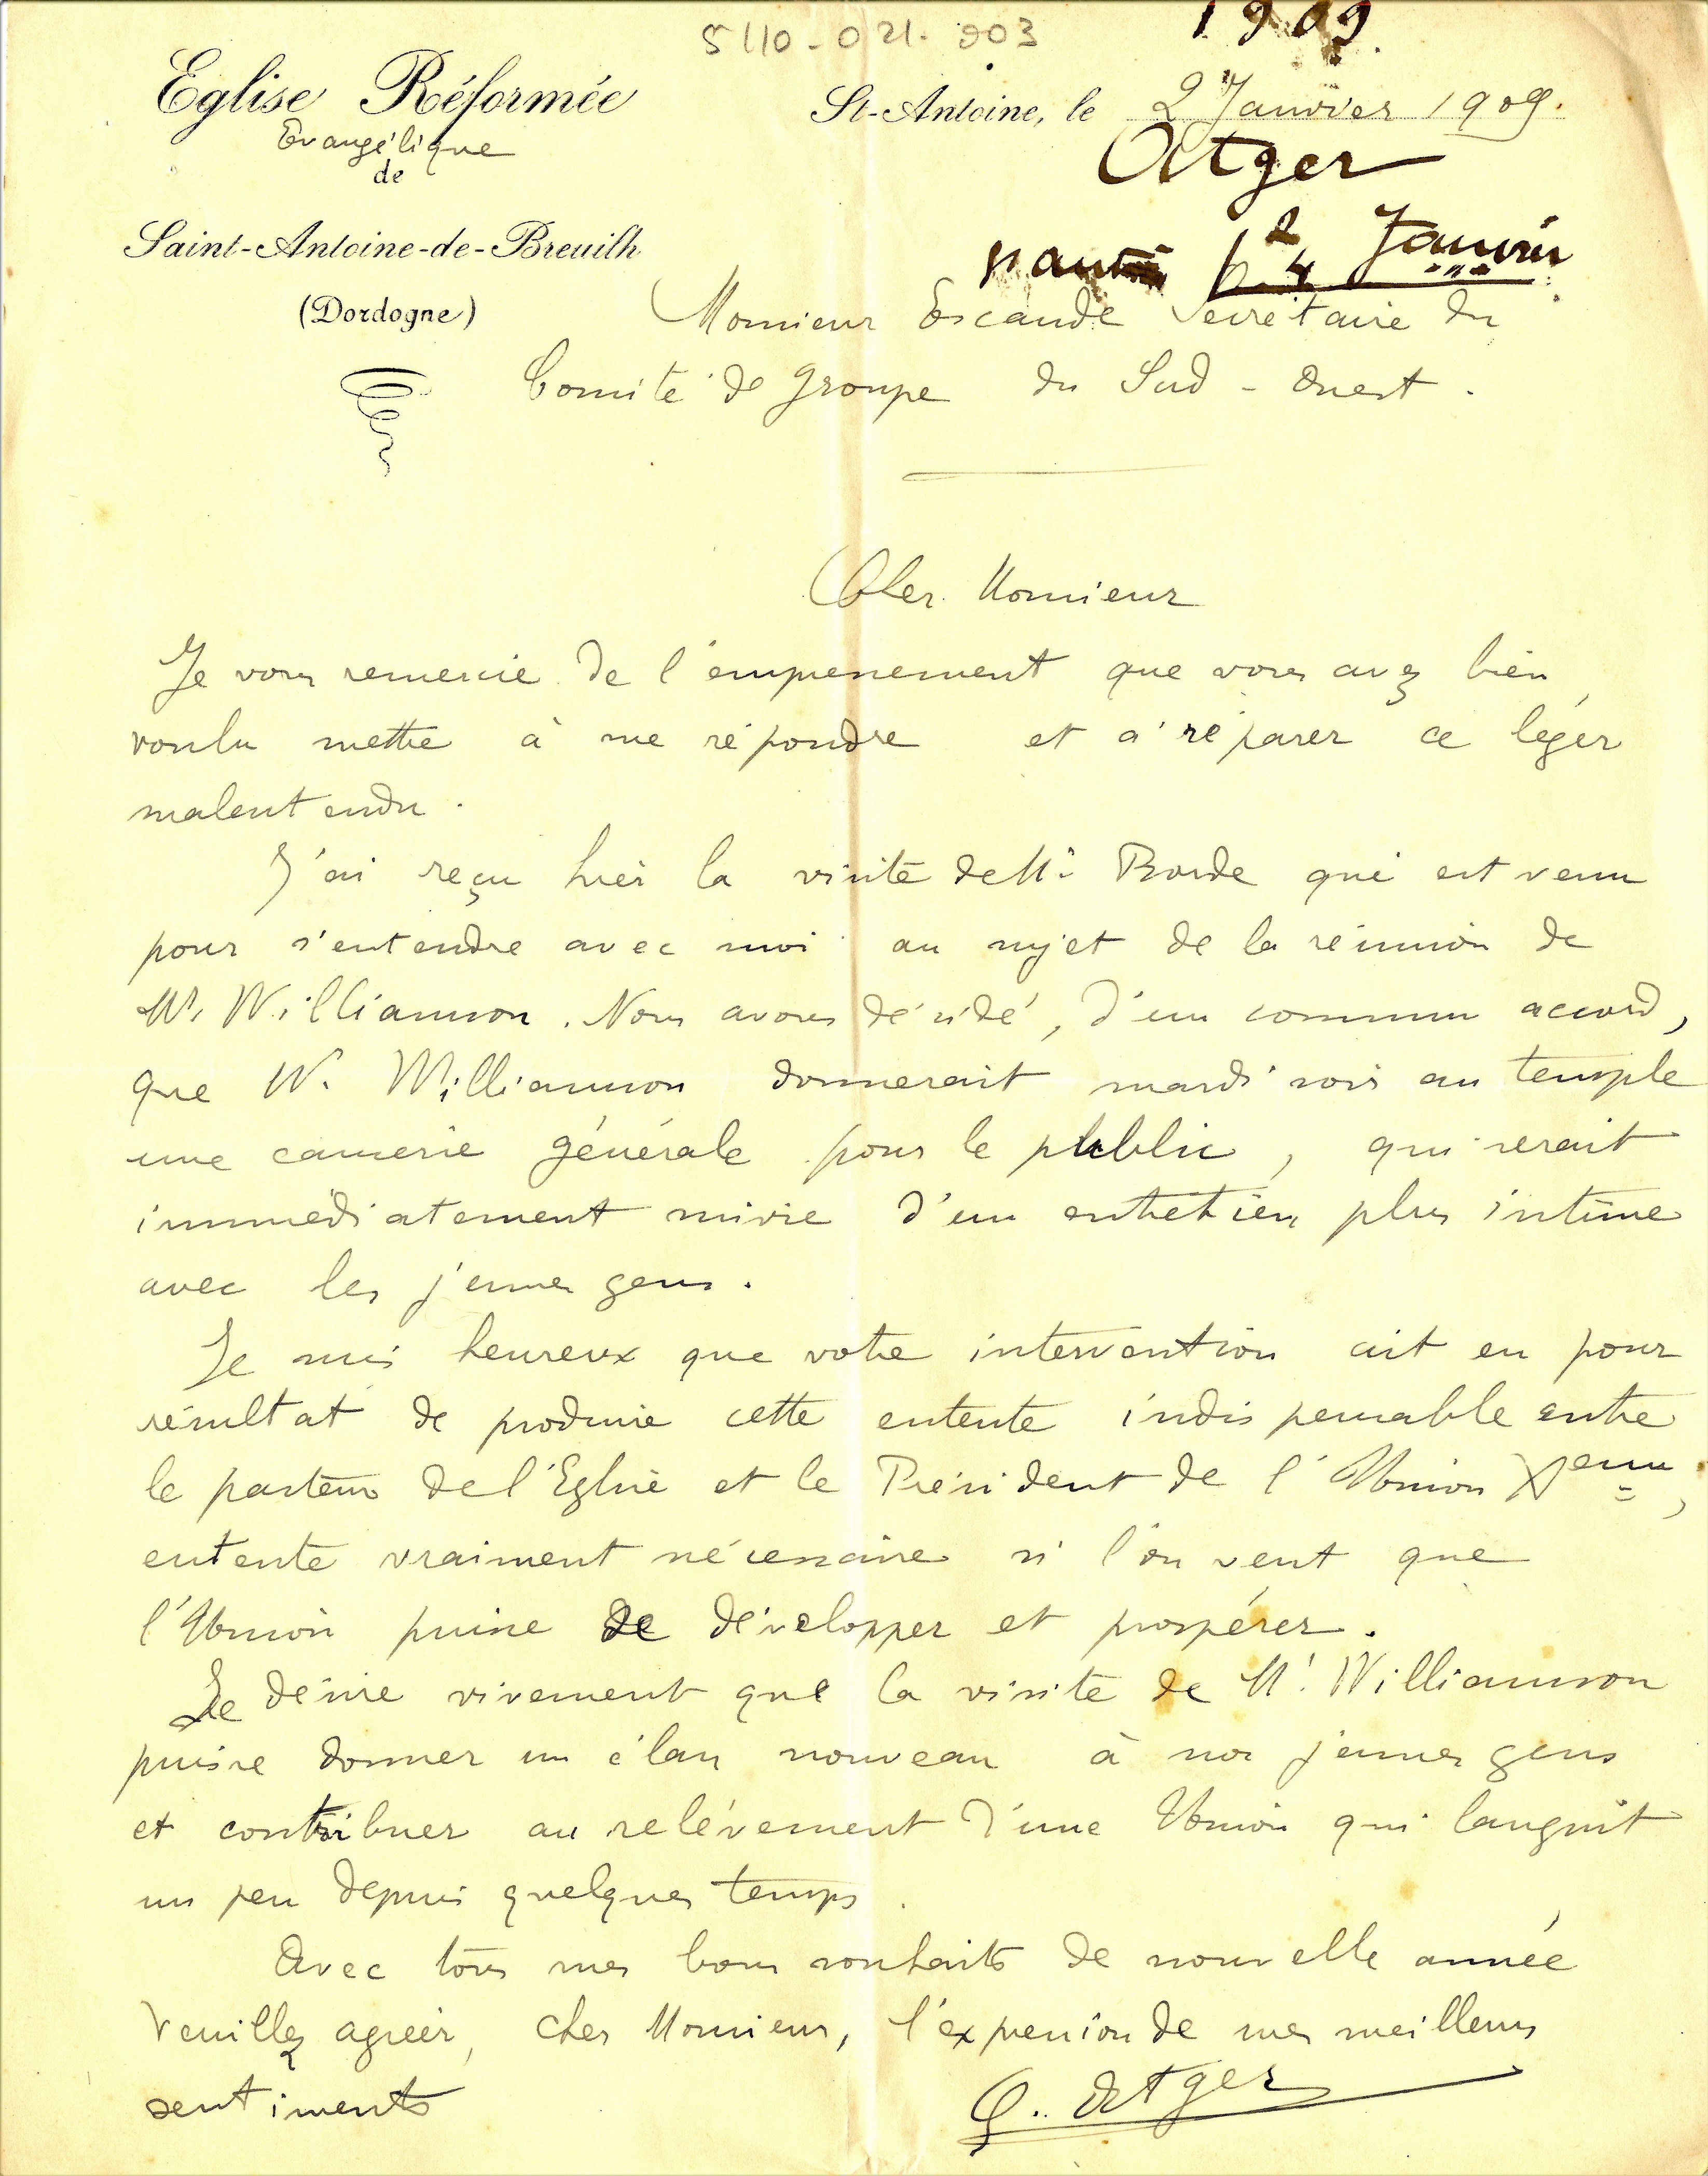 5110-021-003
1909
Eglise Réformée
Evangélique
de
Saint-Antoine-de-Breuilh
(Dordogne)
St-Antoine, le 2 Janvier 1909.
Atger
2 4 Janvier
Monsieur Escande Secrétaire du
Comité de groupe du Sud-Ouest.
Cher Monsieur
Je vous remercie de l'empressement que vous avez bien
voulu mettre à me répondre et à réparer ce léger
malentendu.
J'ai reçu hier la visite de Mr Borde qui est venu
pour s'entendre avec moi au sujet de la réunion de
Mr Williamson. Nous avons décidé, d'un commun accord,
que W. Williamson donnerait mardi soir au temple
une causerie générale pour le public, qui serait
immédiatement suivie d'un entretien plus intime
avec les jeunes gens.
Je suis heureux que votre intervention ait eu pour
résultat de produire cette entente indispensable entre
le pasteur de l'Eglise et le Président de l'Union Xenne,
entente vraiment nécessaire si l'on veut que
l'Union puisse se développer et prospérer.
Je désire vivement que la visite de Mr Williamson
puisse donner un élan nouveau à nos jeunes gens
et contribuer au relèvement d'une Union qui languit
un peu depuis quelques temps.
Avec tous mes bons souhaits de nouvelle année
Veuillez agréer, cher Monsieur, l'expression de mes meilleurs
sentiments
G. Atger